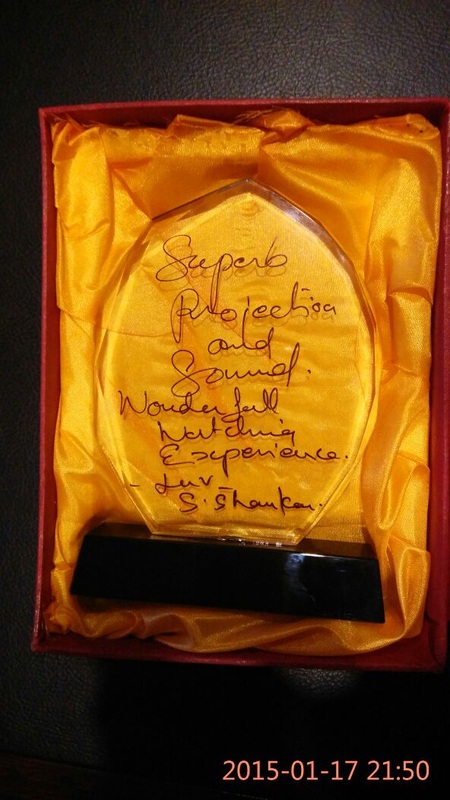 Superb
Projection
and
Sound.
Wonderfull
Watching
Experience.
- Luv -
S. Shankar.
2015-01-17 21:50